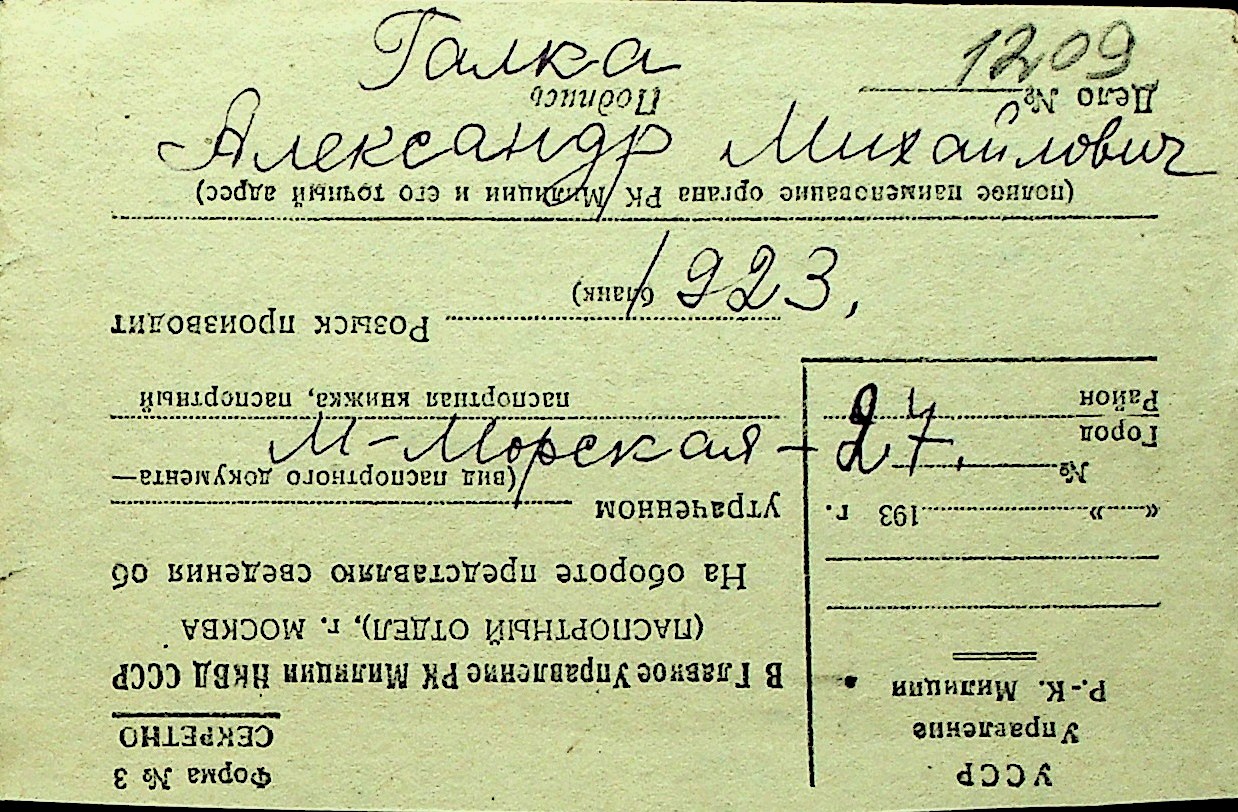 Галка
1209
Александр Михайлович
1923,
М-Морская - 27.
Форма № 3
СЕКРЕТНО
УССР
Управление
Р.-К. Милиции
«......» ............ 193 г.
№
Город
Район
В Главное Управление РК Милиции НКВД СССР
(ПАСПОРТНЫЙ ОТДЕЛ), г. МОСКВА
На обороте представляю сведения об
утраченном
(вид паспортного документа—
паспортная книжка, паспортный
бланк)
Розыск производит
(полное наименование органа РК Милиции и его точный адрес)
Дело №
Подпись